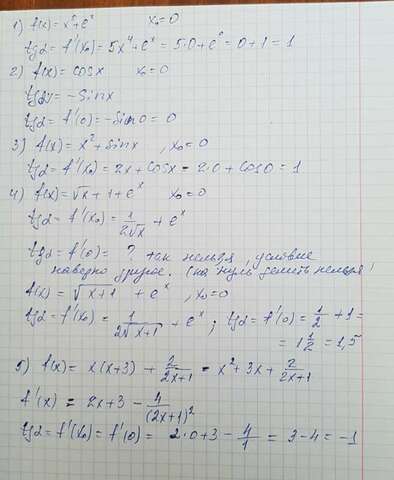 1) f(x) = x⁵ + eˣ x₀ = 0
tg α = f'(x₀) = 5x⁴ + eˣ = 5·0 + e⁰ = 0 + 1 = 1
2) f(x) = cos x x₀ = 0
= -Sin x
tg α = f'(0) = -Sin 0 = 0
3) f(x) = x² + sin x , x₀ = 0
tg α = f'(x₀) = 2x + cos x = 2·0 + cos 0 = 1
4) f(x) = √x + 1 + eˣ x₀ = 0
tg α = f'(x₀) = 1/(2√x) + eˣ
tg α = f'(0) = ? так нельзя, условие
наверно другое. (на нуль делить нельзя!
f(x) = √(x+1) + eˣ , x₀ = 0
tg α = f'(x₀) = 1/(2√(x+1)) + eˣ ; tg α = f'(0) = 1/2 + 1 =
= 1 1/2 = 1,5
5) f(x) = x(x+3) + 2/(2x+1) = x² + 3x + 2/(2x+1)
f'(x) = 2x + 3 - 4/(2x+1)²
tg α = f'(x₀) = f'(0) = 2·0 + 3 - 4/1 = 3 - 4 = -1